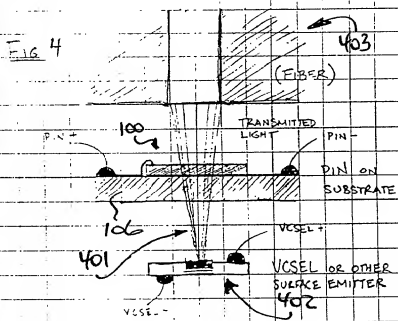 FIG 4
403
(FIBER)
TRANSMITTED
LIGHT
100
PIN+
PIN-
PIN ON
SUBSTRATE
106
401
VCSEL+
VCSEL OR OTHER
SURFACE EMITTER
402
VCSEL-